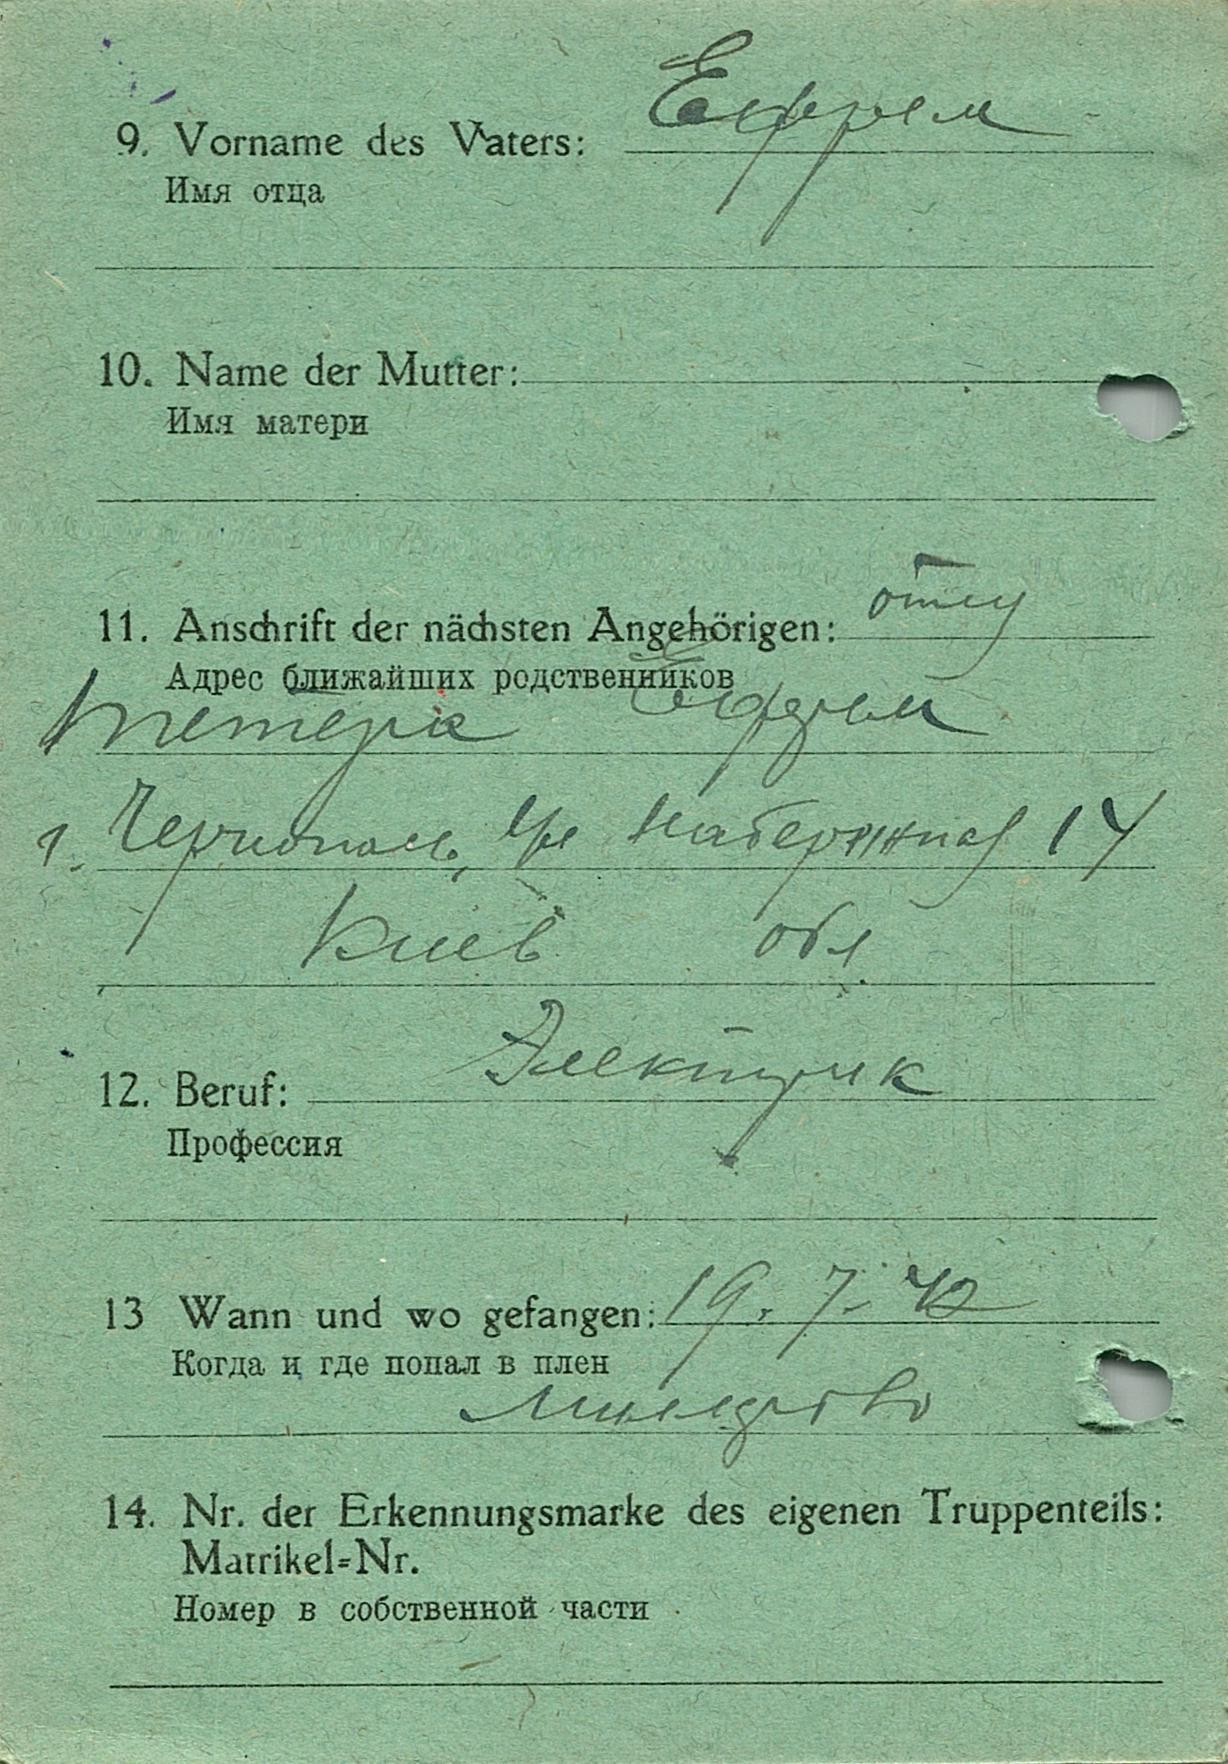 9. Vorname des Vaters: Ефрем
Имя отца
10. Name der Mutter:
Имя матери
11. Anschrift der nächsten Angehörigen: отцу
Адрес ближайших родственников
Тетера Ефрем
г. Чернополь, Ул Набережная 14
Киев обл
12. Beruf: Электрик
Профессия
13 Wann und wo gefangen: 19. 7. 42
Когда и где попал в плен
14. Nr. der Erkennungsmarke des eigenen Truppenteils:
Matrikel=Nr.
Номер в собственной части